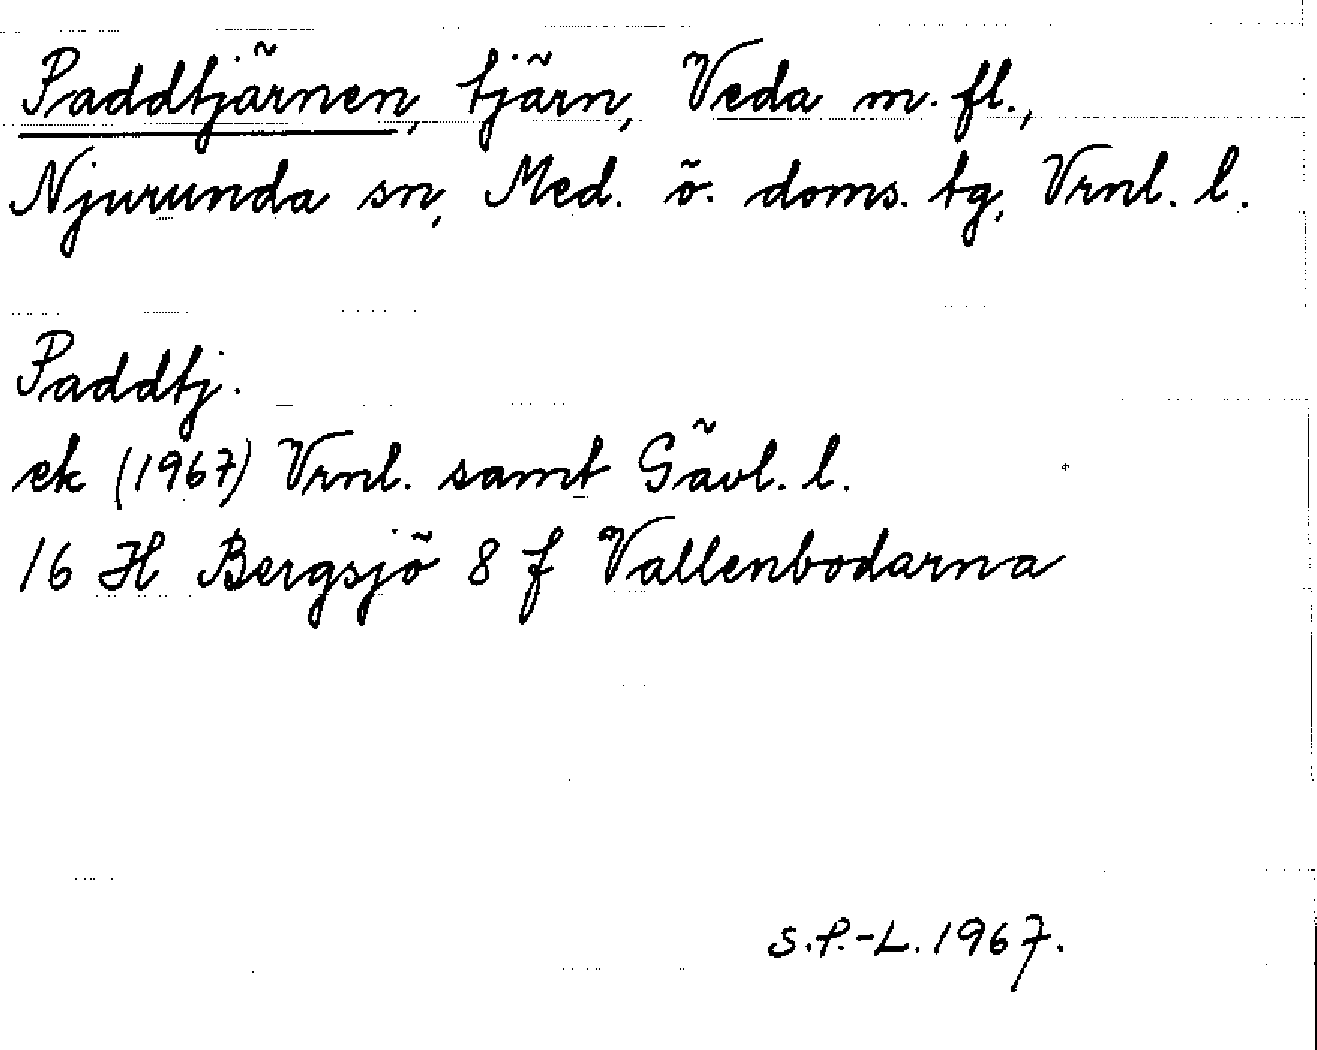 Paddtjärnen, tjärn, Veda m. fl.,
Njurunda sn, Med. ö. doms. tg, Vrnl. l.
Paddtj.
ek (1967) Vrnl. samt Gävl. l.
16 H Bergsjö 8 f Vallenbodarna
S.P.-L. 1967.